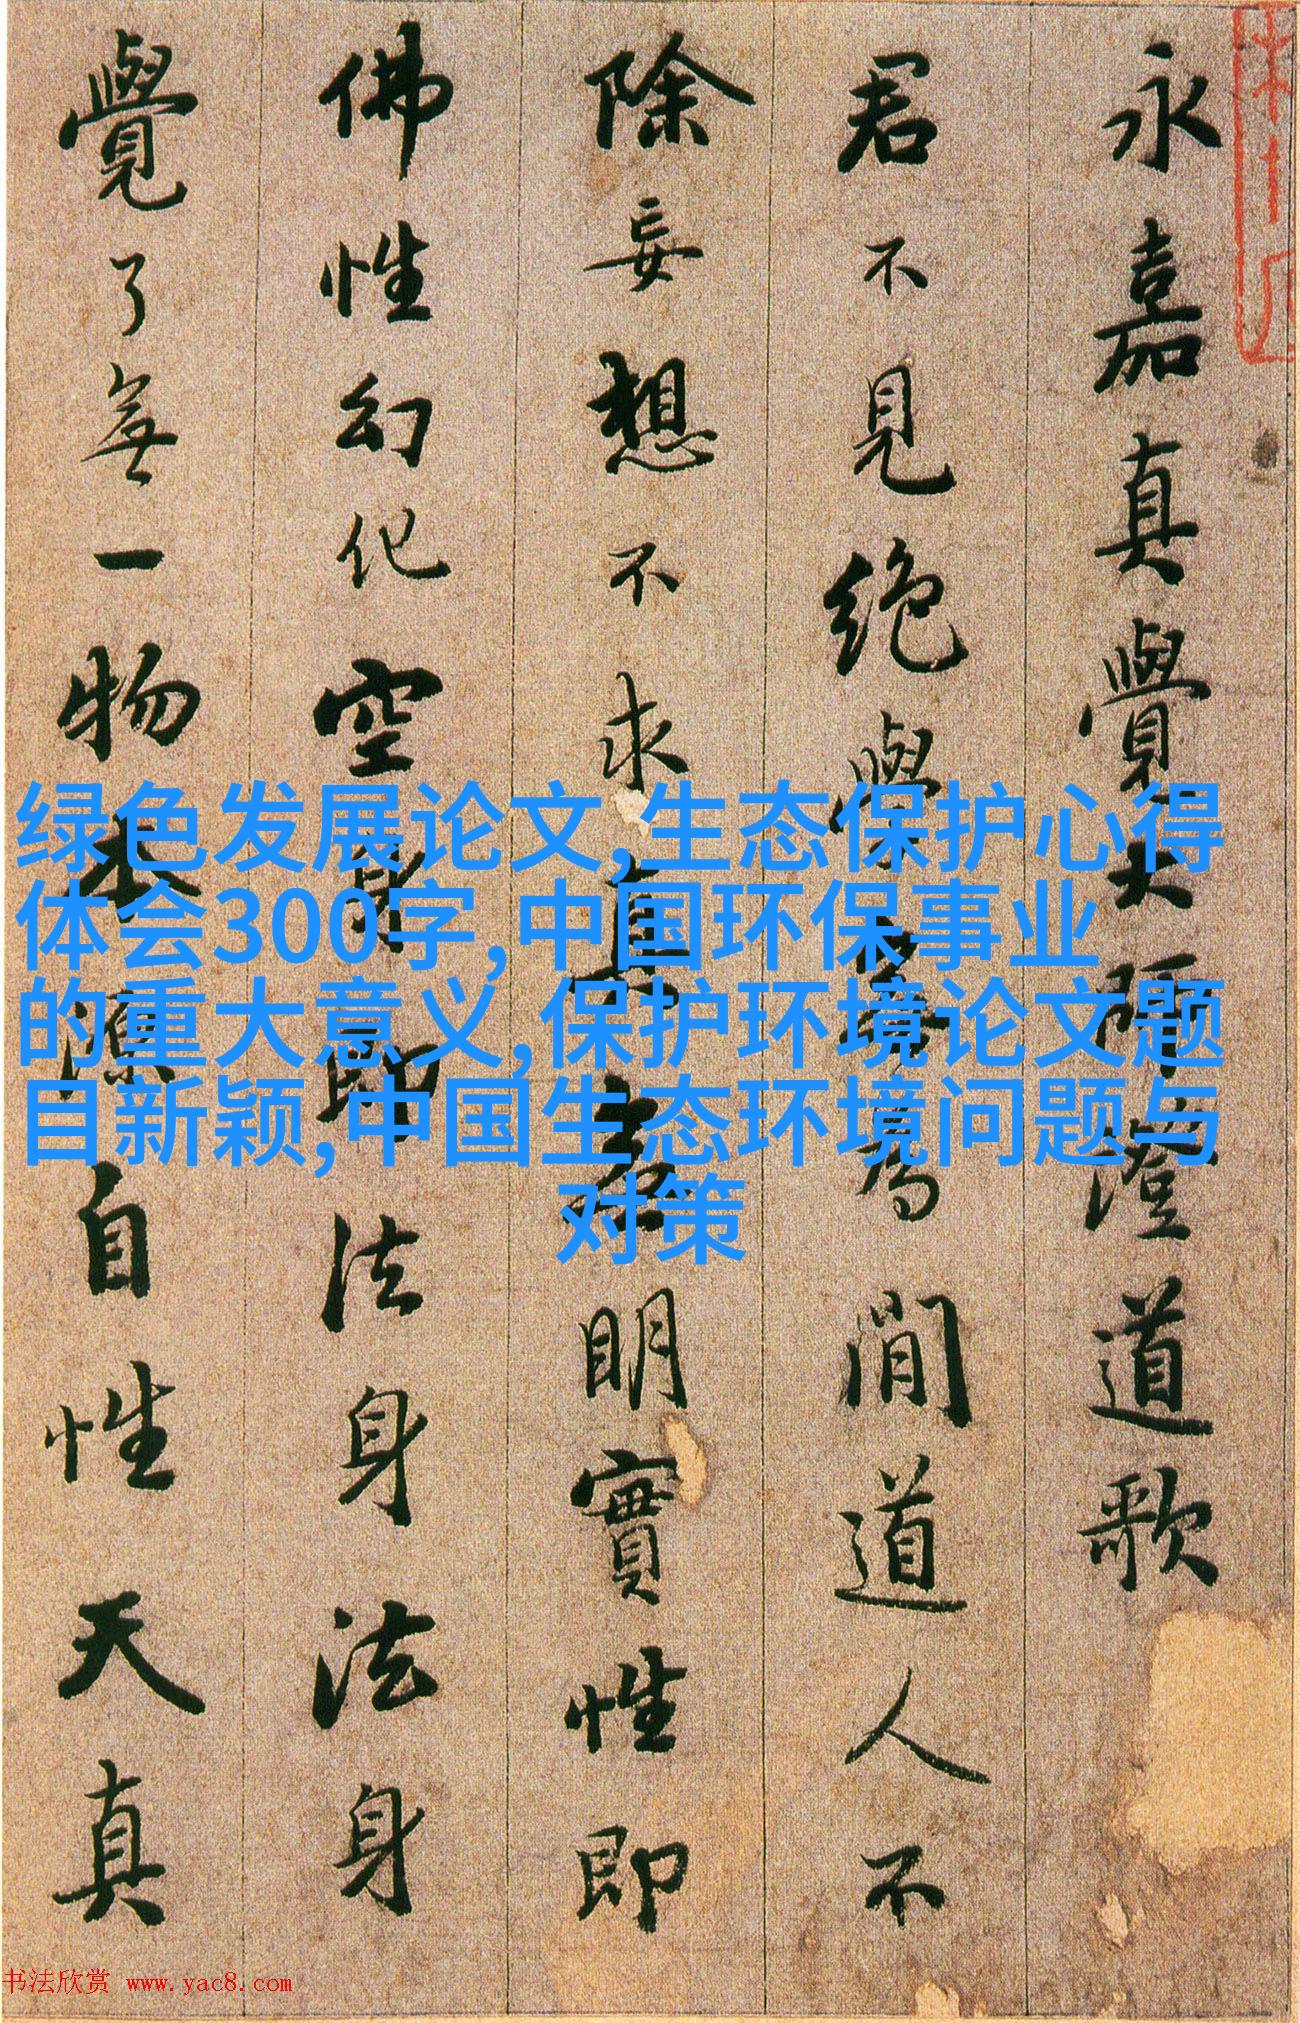 永嘉真覺大師證道歌
君不見絕學無為閒道人不
除妄想不求真無明實性即
佛性幻化空身即法身法身
覺了無一物本源自性天真
绿色发展论文,生态保护心得
体会300字,中国环保事业
的重大意义,保护环境论文题
目新颖,中国生态环境问题与
对策
书法欣赏 www.yac8.com